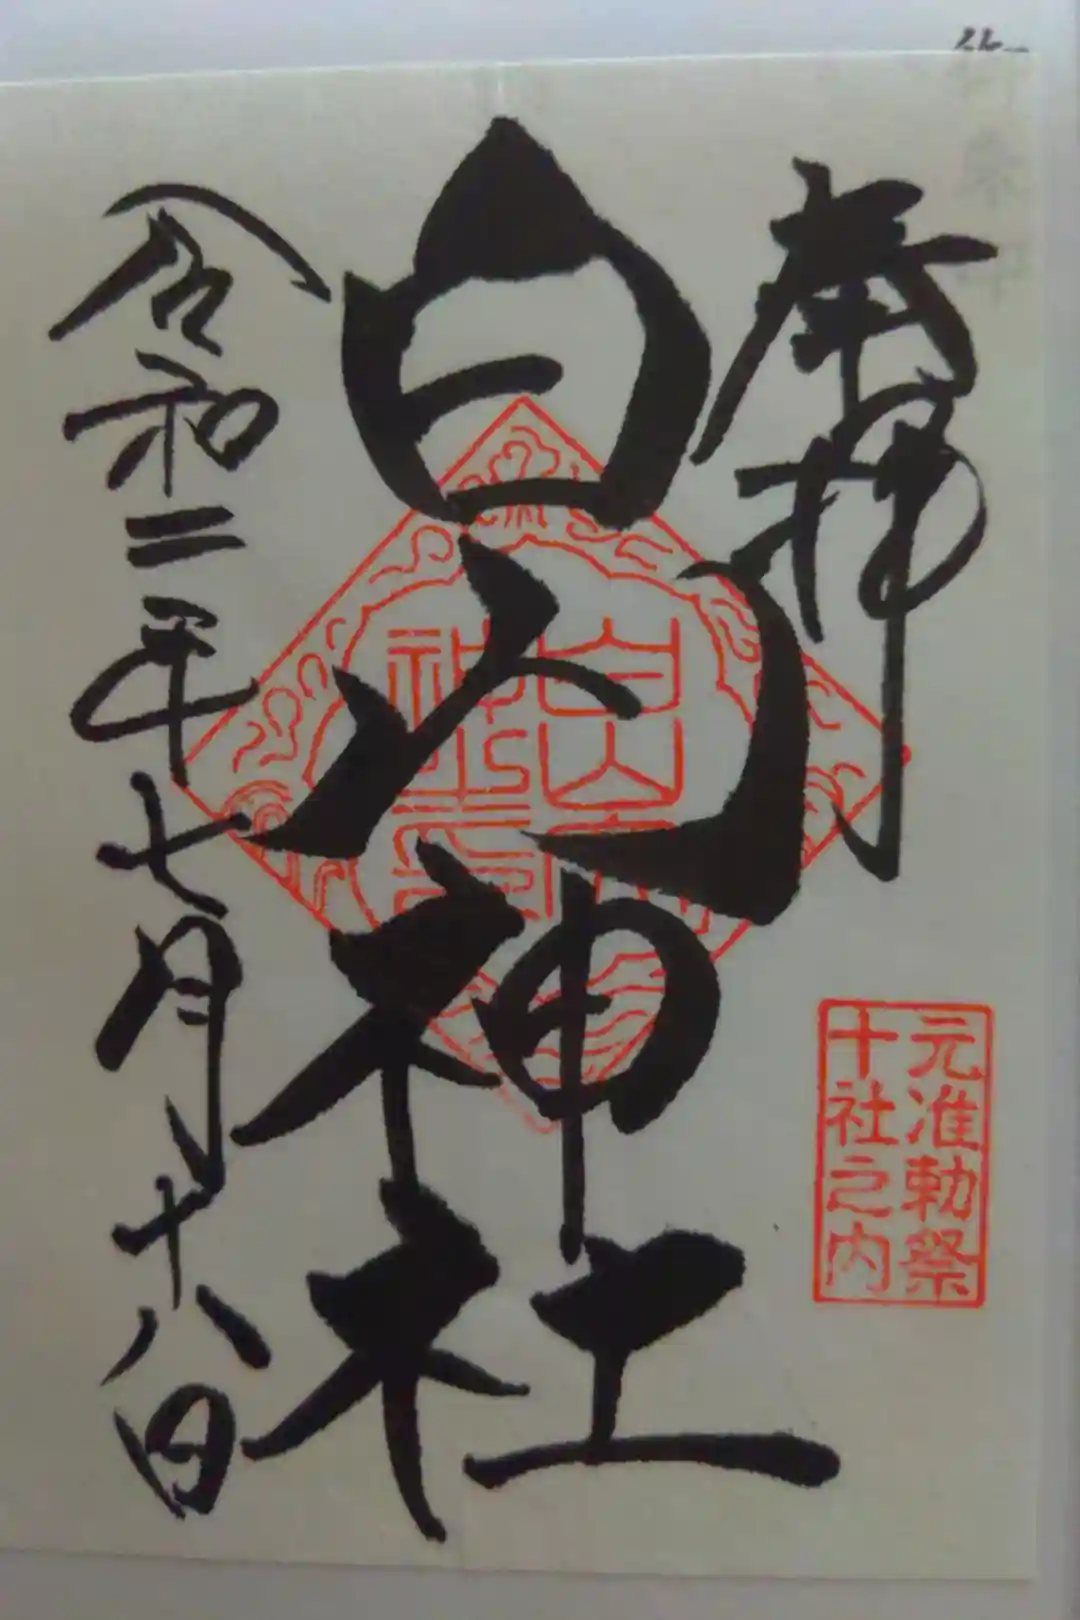 奉拝
元准勅祭
十社之内
白山神社
令和二年七月十八日